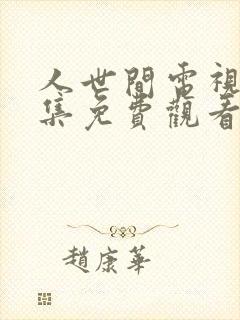 人世間電視
集免費觀看
趙康華